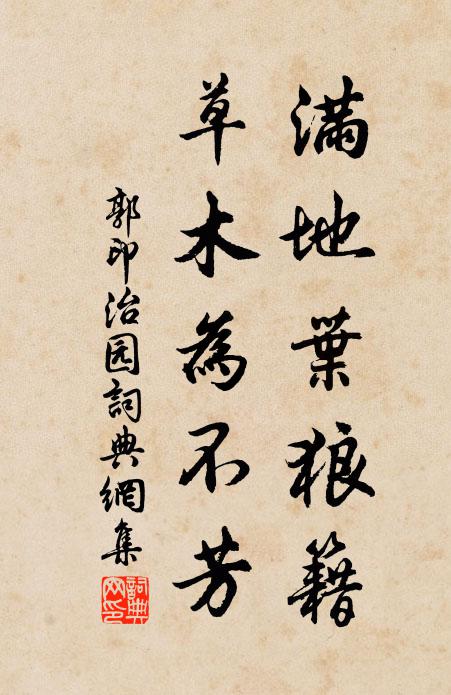 满地葉狼籍
草木為不芳
郭印治园詞典網集
詞典网印